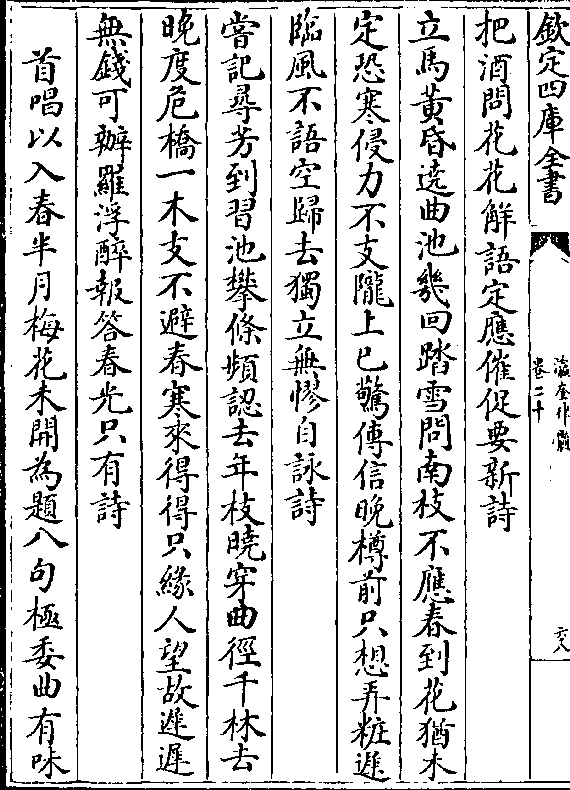 欽定四庫全書
瀛奎律髓
卷二十
六八
把酒問花花解語定應催促要新詩
立馬黃昏遶曲池幾回踏雪問南枝不應春到花猶未
定恐寒侵力不支隴上已驚傳信晚樽前只想弄粧遲
臨風不語空歸去獨立無憀自詠詩
嘗記尋芳到習池攀條頻認去年枝曉穿曲徑千林去
晚度危橋一木支不避春寒來得得只緣人望故遲遲
無錢可辦羅浮醉報答春光只有詩
首唱以入春半月梅花未開為題八句極委曲有味